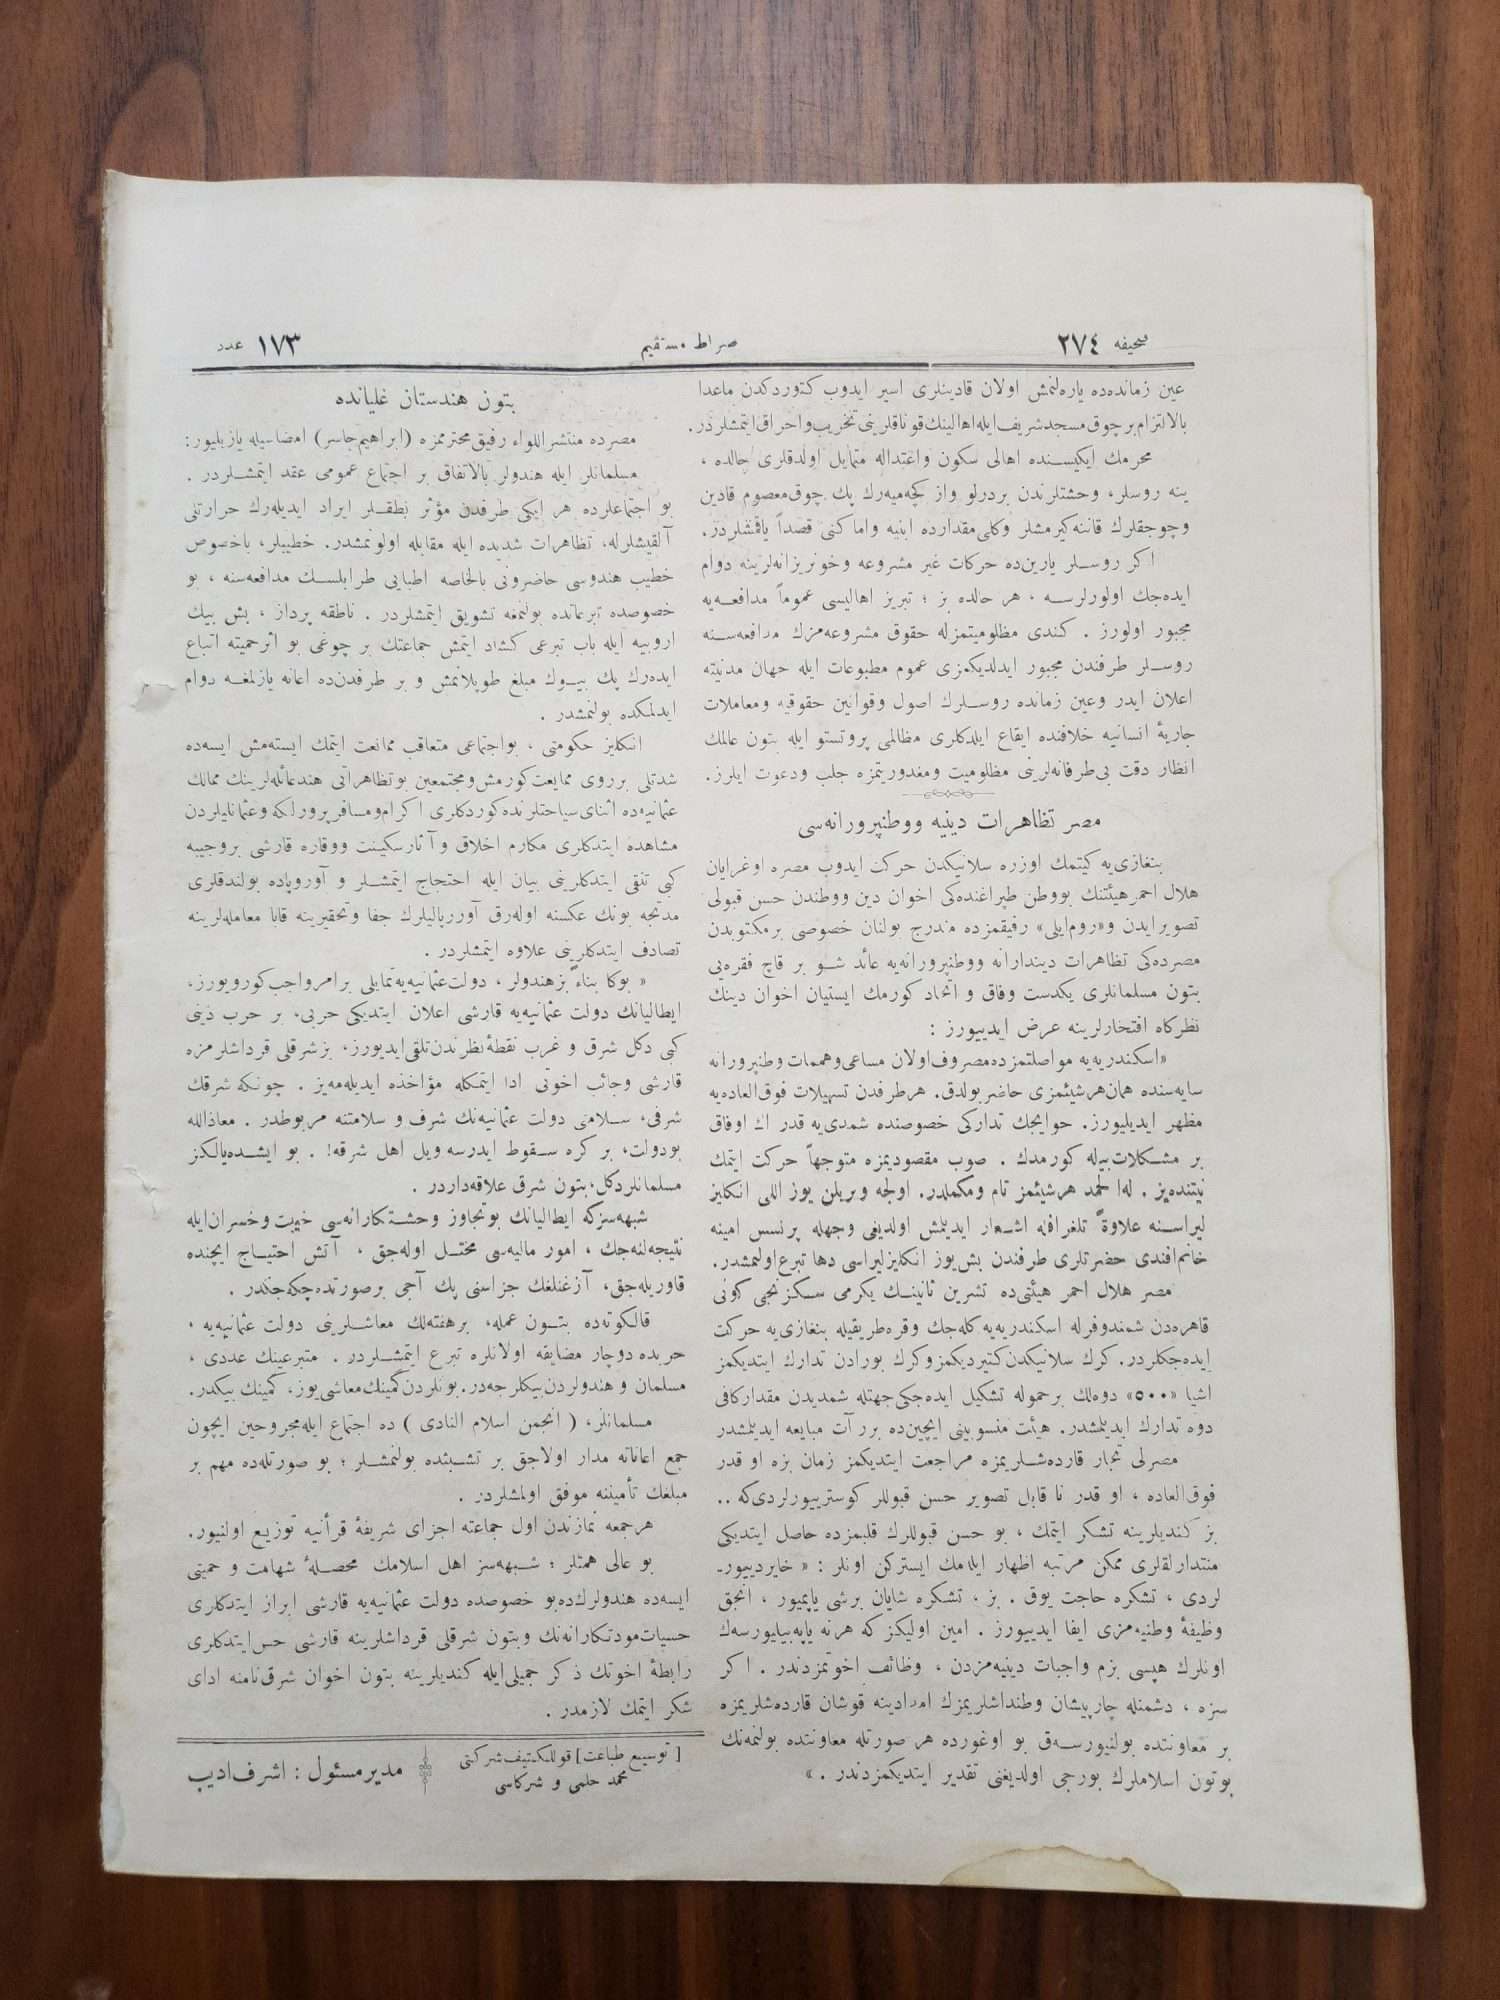 صحیفه ٢٧٤
صراط مستقیم
١٧٣ عدد
عین زمانده‌ده یاره‌لنمش اولان قادینلری اسیر ایدوب کتوردکدن ماعدا
بالالتزام برچوق مسجد شریف ایله اهالینك قوناقلرینی تخریب و احراق ایتمشلردر.
محرمك ایکیسنده اهالی سکون واعتداله متمایل اولدقلری حالده ،
ینه روسلر، وحشتلرندن بردرلو واز کچه‌میه‌رك پك چوق معصوم قادین
وچوجقلرك قاننه کیرمشلر وکلی مقدارده ابنیه واماکنی قصداً یاقمشلردر.
اکر روسلر یارین‌ده حرکات غیر مشروعه وخونریزانه‌لرینه دوام
ایده‌جك اولورلرسه ، هر حالده بز ؛ تبریز اهالیسی عموماً مدافعه‌یه
مجبور اولورز . کندی مظلومیتمزله حقوق مشروعه‌مزك مدافعه‌سنه
روسلر طرفندن مجبور ایدلدیکمزی عموم مطبوعات ایله جهان مدنیته
اعلان ایدر وعین زمانده روسلرك اصول وقوانین حقوقیه ومعاملات
جاریهٔ انسانیه خلافنده ایقاع ایلدکلری مظالمی پروتستو ایله بتون عالمك
انظار دقت بی‌طرفانه‌لرینی مظلومیت ومغدوریتمزه جلب ودعوت ایلرز.
مصر تظاهرات دینیه ووطنپرورانه‌سی
بنغازی‌یه کیتمك اوزره سلانیکدن حرکت ایدوب مصره اوغرایان
هلال احمر هیئتنك بووطن طپراغنده‌کی اخوان دین ووطندن حسن قبولی
تصویر ایدن و«روم‌ایلی» رفیقمزده مندرج بولنان خصوصی برمکتوبدن
مصرده‌کی تظاهرات دیندارانه ووطنپرورانه‌یه عائد شو بر قاچ فقره‌یی
بتون مسلمانلری یکدست وفاق و اتحاد کورمك ایستیان اخوان دینك
نظرکاه افتخارلرینه عرض ایدییورز :
«اسکندریه‌یه مواصلتمزده مصروف اولان مساعی وهممات وطنپرورانه
سایه‌سنده همان هرشیئمزی حاضر بولدق. هرطرفدن تسهیلات فوق‌العاده‌یه
مظهر ایدیلیورز. حوایجك تدارکی خصوصنده شمدی‌یه قدر اك اوفاق
بر مشکلات بیله کورمدك . صوب مقصودیمزه متوجهاً حرکت ایتمك
نیتنده‌یز . له‌الحمد هرشیئمز تام ومکملدر. اولجه ویریلن یوز اللی انکلیز
لیراسنه علاوةً تلغرافله اشعار ایدیلمش اولدیغی وجهله پرنسس امینه
خانم‌افندی حضرتلری طرفندن بش‌یوز انکلیزلیراسی دها تبرع اولنمشدر.
مصر هلال احمر هیئتی‌ده تشرین ثانینك یکرمی سکزنجی کونی
قاهره‌دن شمندوفرله اسکندریه‌یه کله‌جك وقره‌طریقیله بنغازی‌یه حرکت
ایده‌جکلردر. کرك سلانیکدن کتیردیکمز وکرك بورادن تدارك ایتدیکمز
اشیا «٥٠٠» دوه‌لك برحموله تشکیل ایده‌جکی جهتله شمدیدن مقدارکافی
دوه تدارك ایدیلمشدر. هیئت منسوبینی ایچین‌ده برر آت مبایعه ایدیلمشدر
مصرلی تجار قارده‌شلریمزه مراجعت ایتدیکمز زمان بزه او قدر
فوق‌العاده ، او قدر نا قابل تصویر حسن قبوللر کوستریورلردی‌که ..
بز کندیلرینه تشکر ایتمك ، بو حسن قبوللرك قلبمزده حاصل ایتدیکی
منتدارلقلری ممکن مرتبه اظهار ایله‌مك ایسترکن اونلر : « خایردییور-
لردی ، تشکره حاجت یوق . بز ، تشکره شایان برشی یاپمیور ، انجق
وظیفهٔ وطنیه‌مزی ایفا ایدییورز . امین اولیکز که هرنه یاپه‌بیلیورسه‌ك
اونلرك هپسی بزم واجبات دینیه‌مزدن ، وظائف اخوتمزدندر . اکر
سزه ، دشمنله چارپیشان وطنداشلریمزك امدادینه قوشان قارده‌شلریمزه
بر معاونتده بولنیورسه‌ق بو اوغورده هر صورتله معاونتده بولنمه‌نك
بوتون اسلاملرك بورجی اولدیغنی تقدیر ایتدیکمزدندر . »
بتون هندستان غلیانده
مصرده منتشر اللواء رفیق محترممزه (ابراهیم جاسر) امضاسیله یازیلیور:
مسلمانلر ایله هندولر بالاتفاق بر اجتماع عمومی عقد ایتمشلردر .
بو اجتماعلرده هر ایکی طرفدن مؤثر نطقلر ایراد ایدیله‌رك حرارتلی
آلقیشلرله، تظاهرات شدیده ایله مقابله اولونمشدر. خطیبلر، باخصوص
خطیب هندوسی حاضرونی بالخاصه اطبایی طرابلسك مدافعه‌سنه ، بو
خصوصده تبرعاتده بولنمغه تشویق ایتمشلردر . ناطقه پرداز ، بش بیك
اروپیه ایله باب تبرعی کشاد ایتمش جماعتك بر چوغی بو اثرحمیته اتباع
ایده‌رك پك بیوك مبلغ طوپلانمش و بر طرفدن‌ده اعانه یازلمغه دوام
ایدلمکده بولنمشدر .
انکلیز حکومتی ، بواجتماعی متعاقب ممانعت ایتمك ایسته‌مش ایسه‌ده
شدتلی برروی ممایعت کورمش ومجتمعین بوتظاهراتی هندعائله‌لرینك ممالك
عثمانیه‌ده اثنای سیاحتلرنده کوردکلری اکرام ومسافرپرورلکه وعثمانلیلردن
مشاهده ایتدکلری مکارم اخلاق وآثار سکینت ووقاره قارشی بروجیبه
کبی تلقی ایتدکلرینی بیان ایله احتجاج ایتمشلر و آوروپاده بولندقلری
مدتجه بونك عکسنه اوله‌رق آوروپالیلرك جفا وتحقیرینه قابا معامله‌لرینه
تصادف ایتدکلرینی علاوه ایتمشلردر .
« بوکا بناءً بزهندولر ، دولت عثمانیه‌یه تمایلی برامرواجب کورویورز،
ایطالیانك دولت عثمانیه‌یه قارشی اعلان ایتدیکی حربی، بر حرب دینی
کبی دکل شرق و غرب نقطهٔ نظرندن تلقی ایدیورز، بزشرقلی قرداشلرمزه
قارشی وجائب اخوتی ادا ایتمکله مؤاخذه ایدیله‌مه‌یز . چونکه شرقك
شرفی، سلامتی دولت عثمانیه‌نك شرف و سلامتنه مربوطدر . معاذالله
بودولت، بر کره سقوط ایدرسه ویل اهل شرقه! . بو ایشده یالکز
مسلمانلردکل، بتون شرق علاقه‌داردر .
شبهه‌سزکه ایطالیانك بوتجاوز وحشتکارانه‌سی خیبت وخسران ایله
نتیجه‌لنه‌جك ، امور مالیه‌سی مختل اوله‌جق ، آتش احتیاج ایچنده
قاوریله‌جق، آزغنلغك جزاسنی پك آجی برصورتده چکه‌جکدر .
قالکوته‌ده بتون عمله، برهفته‌لك معاشلرینی دولت عثمانیه‌یه ،
حربده دوچار مضایقه اولانلره تبرع ایتمشلردر . متبرعینك عددی ،
مسلمان و هندولردن بیکلرجه‌در. بونلردن کمینك معاشی یوز، کمینك بیکدر.
مسلمانلر، ( انجمن اسلام النادی ) ده اجتماع ایله مجروحین ایچون
جمع اعاناته مدار اولاجق بر تشبثده بولنمشلر ؛ بو صورتله‌ده مهم بر
مبلغك تأمیننه موفق اولمشلردر .
هرجمعه نمازندن اول جماعته اجزای شریفهٔ قرآنیه توزیع اولنیور.
بو عالی همتلر ؛ شبهه‌سز اهل اسلامك محصلهٔ شهامت و حمیتی
ایسه‌ده هندولرك‌ده بو خصوصده دولت عثمانیه‌یه قارشی ابراز ایتدکلری
حسیات مودتکارانه‌نك وبتون شرقلی قرداشلرینه قارشی حس ایتدکلری
رابطهٔ اخوتك ذکر جمیلی ایله کندیلرینه بتون اخوان شرق نامنه ادای
شکر ایتمك لازمدر .
[ توسیع طباعت ] قوللکتیف شرکتی
محمد حلمی و شرکاسی
مدیر مسئول : اشرف ادیب